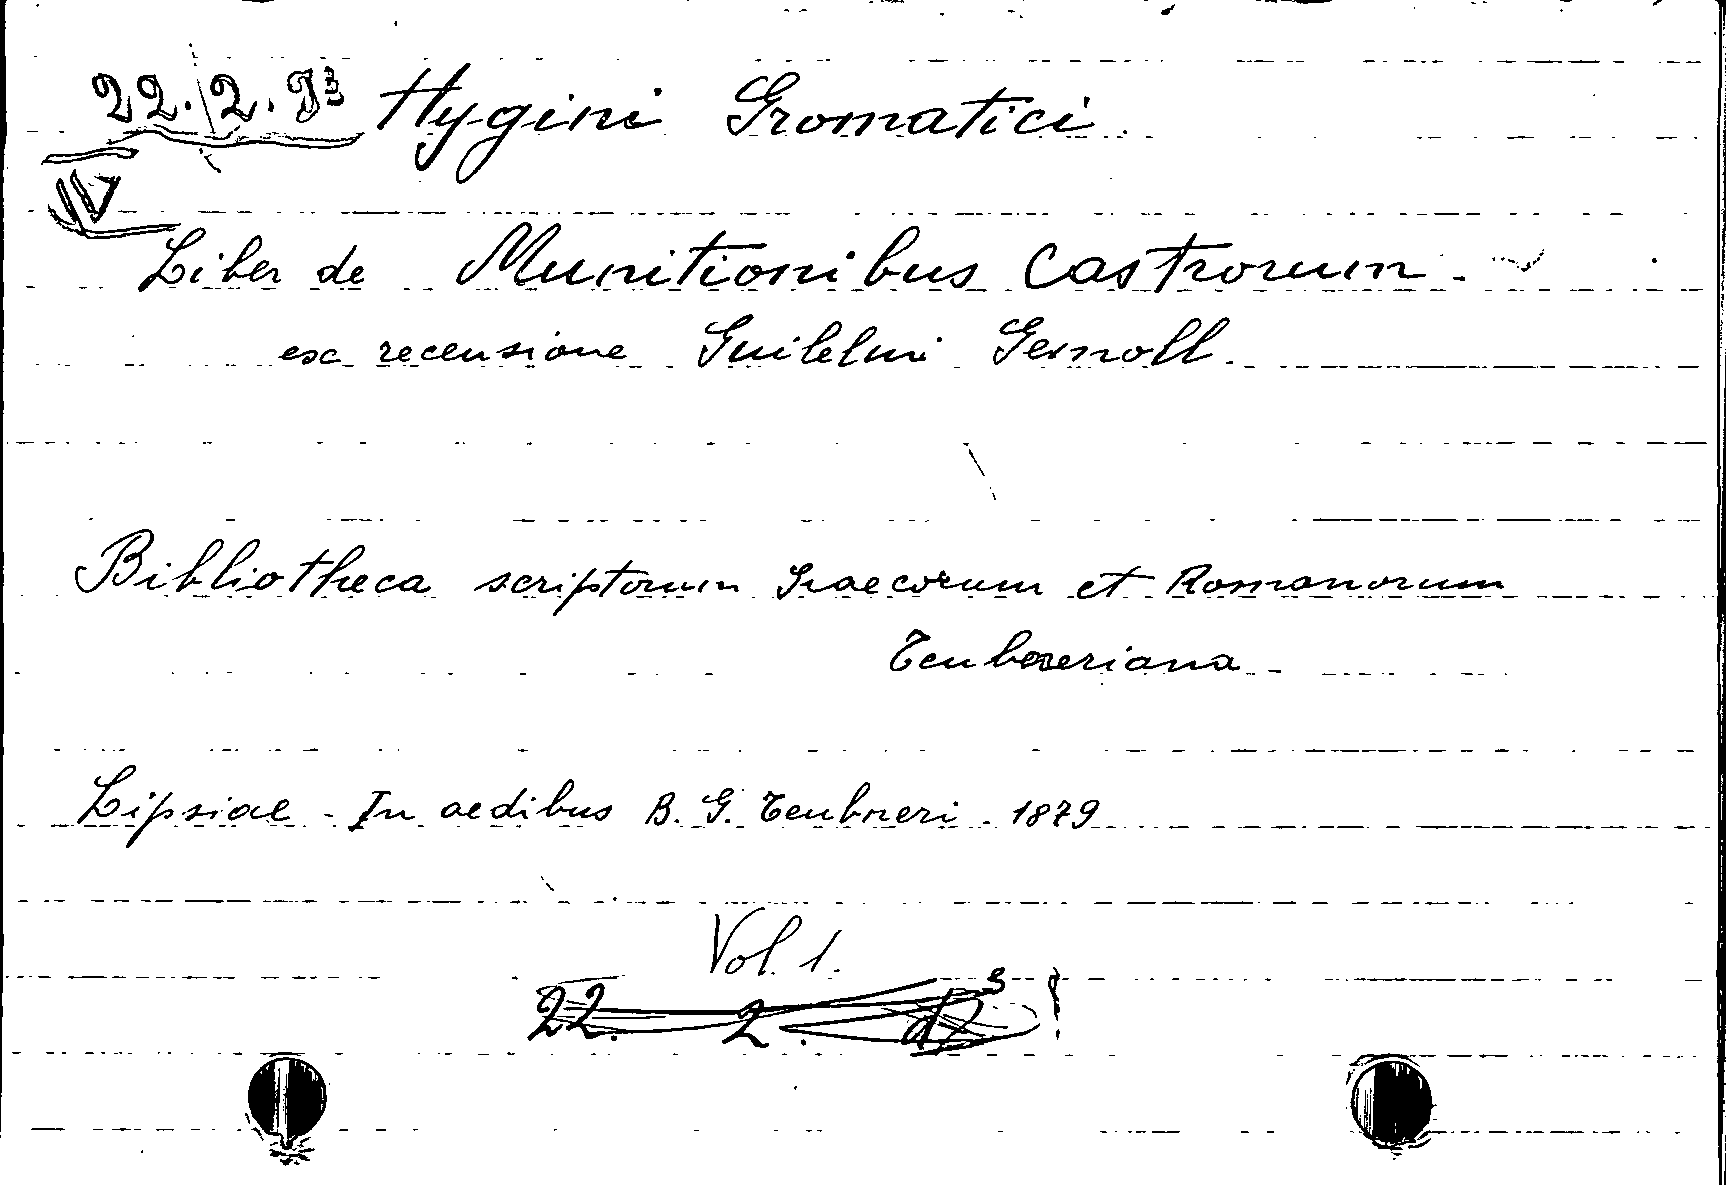 22.2.g³ Hygini Gromatici.
IV
Liber de Munitionibus Castrorum.
ex recensione Guilelmi Gemoll.
Bibliotheca scriptorum Graecorum et Romanorum
Teubneriana
Lipsiae - In aedibus B. G. Teubneri - 1879
Vol. 1.
22. 2.